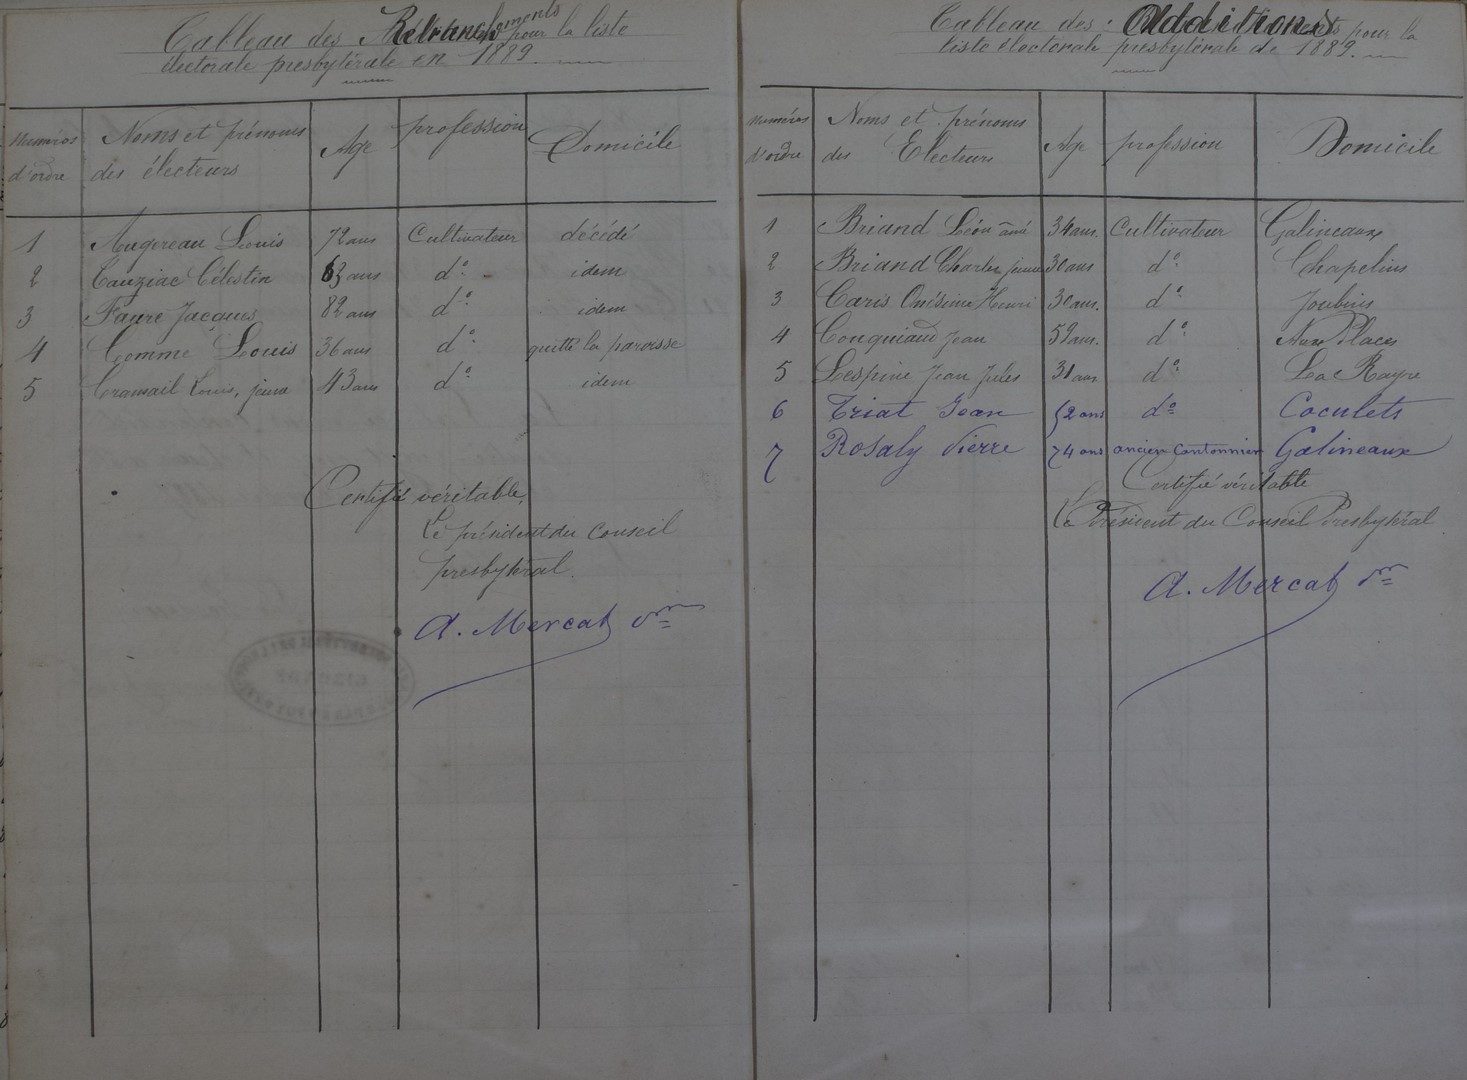 Tableau des Retranchements pour la liste
électorale presbytérale en 1889.
Numéros d'ordre | Noms et prénoms des électeurs | Age | profession | Domicile
1 | Augereau Louis | 72 ans | Cultivateur | décédé
2 | Cauziac Célestin | 63 ans | d° | idem
3 | Faure Jacques | 82 ans | d° | idem
4 | Comme Louis | 36 ans | d° | quitté la paroisse
5 | Cramail Louis, jeune | 43 ans | d° | idem
Certifié véritable,
Le président du Conseil
presbytéral.
A. Mercat
Tableau des Additions pour la
liste électorale presbytérale de 1889.
Numéros d'ordre | Noms et prénoms des Electeurs | Age | profession | Domicile
1 | Briand Léon ainé | 34 ans. | Cultivateur | Galineaux
2 | Briand Charles jeune | 30 ans | d° | Chapelins
3 | Caris Onésime Henri | 30 ans. | d° | Joubins
4 | Jean | 59 ans. | d° | Aux Places
5 | Lespine Jean Jules | 31 ans | d° | La Rayre
6 | Triat Jean | 52 ans | d° | Coculets
7 | Rosaly Pierre | 74 ans | ancien Cantonnier | Galineaux
Certifié véritable
Le Président du Conseil Presbytéral
A. Mercat